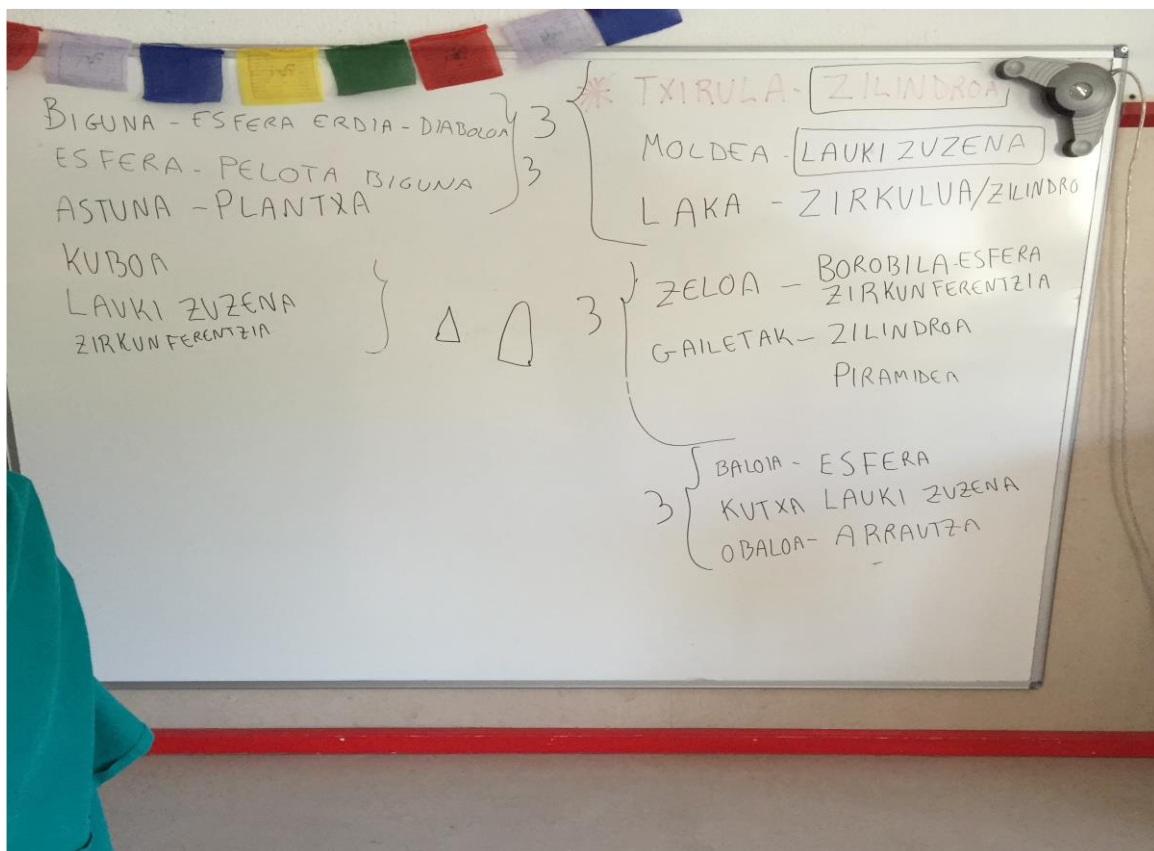 BIGUNA - ESFERA ERDIA - DIABOLOA } 3
ESFERA - PELOTA BIGUNA 3
ASTUNA - PLANTXA
KUBOA
LAUKI ZUZENA
ZIRKUNFERENTZIA
* TXIRULA - ZILINDROA
MOLDEA - LAUKI ZUZENA
LAKA - ZIRKULUA/ZILINDRO
3 { ZELOA - BOROBILA-ESFERA
ZIRKUNFERENTZIA
GAILETAK - ZILINDROA
PIRAMIDEA
BALOIA - ESFERA
3 { KUTXA LAUKI ZUZENA
OBALOA - ARRAUTZA